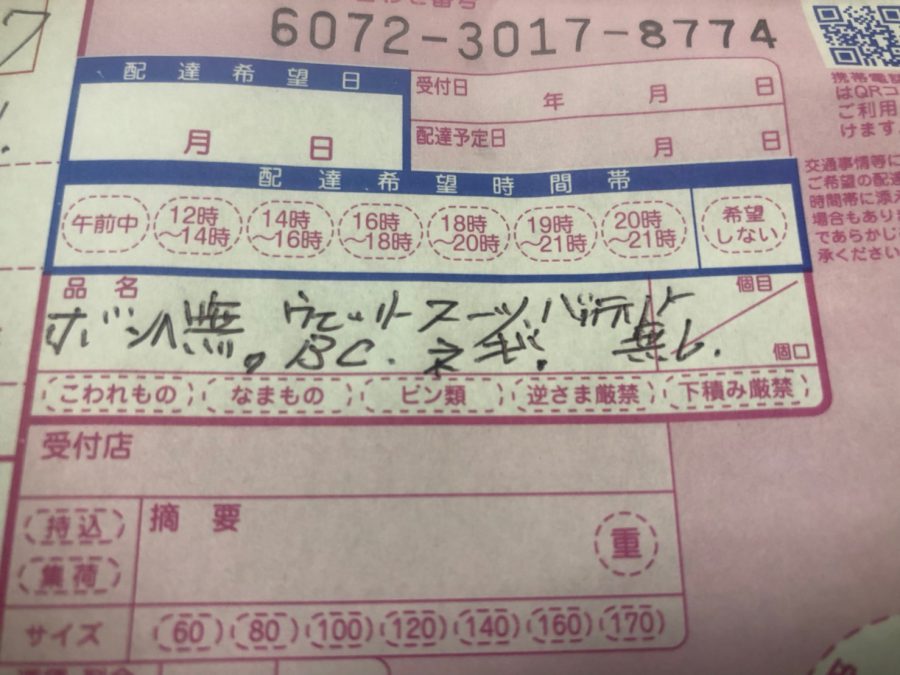 6072-3017-8774
配達希望日
月 日
受付日 年 月 日
配達予定日 月 日
携帯電話
はQRコ
ご利用
けます
配達希望時間帯
午前中 12時～14時 14時～16時 16時～18時 18時～20時 19時～21時 20時～21時 希望しない
交通事情等に
ご希望の配達
時間帯に添え
場合もあり
であらかじ
承ください
品名 個目
ボンベ無。ウエットスーツ
BC. 無し.
個口
こわれもの なまもの ビン類 逆さま厳禁 下積み厳禁
受付店
持込 摘要 重
集荷
サイズ 60 80 100 120 140 160 170